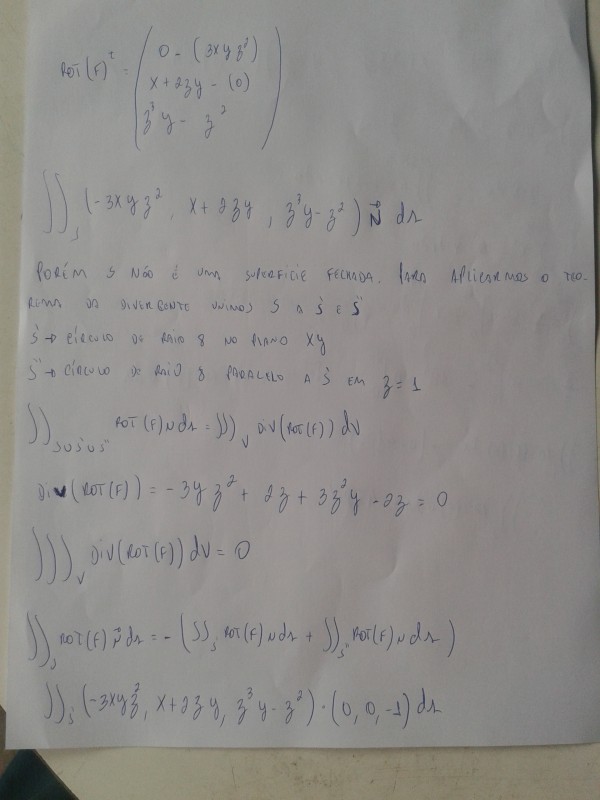 ROT(F)ᵗ = ( 0 - (3xyz²)
x + 2zy - (0)
z³y - z² )
∬ₛ (-3xyz², x + 2zy, z³y - z²) N⃗ ds
PORÉM S NÃO É UMA SUPERFÍCIE FECHADA. PARA APLICARMOS O TEO-
REMA DA DIVERGENTE UNIMOS S A S' E S''
S' → CÍRCULO DE RAIO 8 NO PLANO XY
S'' → CÍRCULO DE RAIO 8 PARALELO A S' EM z = 1
∬_{SUS'US''} ROT(F) N ds = ∭ᵥ DIV(ROT(F)) dV
DIV(ROT(F)) = -3yz² + 2z + 3z²y - 2z = 0
∭ᵥ DIV(ROT(F)) dV = 0
∬ₛ ROT(F) N⃗ ds = - (∬_{S'} ROT(F) N ds + ∬_{S''} ROT(F) N ds)
∬_{S'} (-3xyz², x + 2zy, z³y - z²) · (0, 0, -1) ds